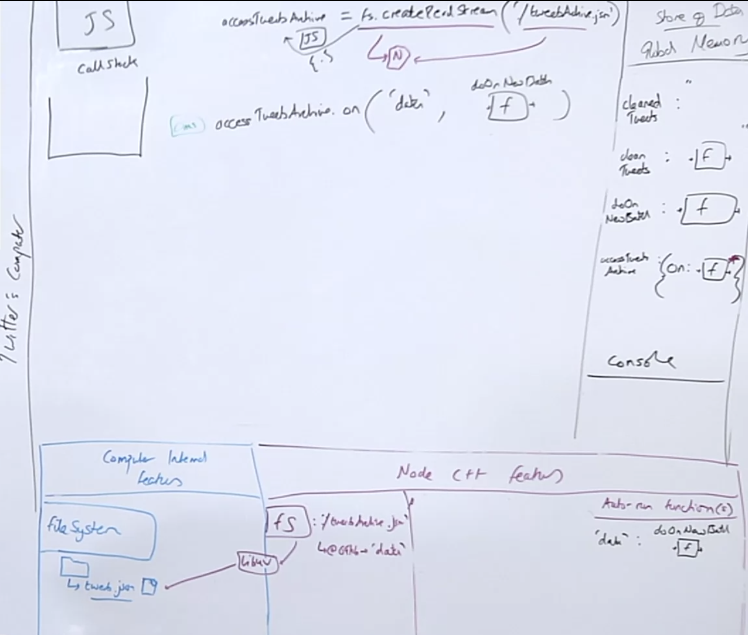 JS
Call Stack
accessTweetsArchive = fs.createReadStream('/tweetsArchive.json')
JS
{ }
N
1ms accessTweetsArchive.on('data', f)
doOnNewBatch
Store of Data
Global Memory
cleaned Tweets : "
"
clean Tweets : f
doOn NewBatch : f
accessTweets Archive : {on: f}
Console
Twitter's Computer
Computer Internal
features
Node C++ features
fileSystem
tweets.json
fs : '/tweetsArchive.json'
Libuv
↳@64kb→'data'
Auto-run function(s)
'data' : doOnNewBatch
f